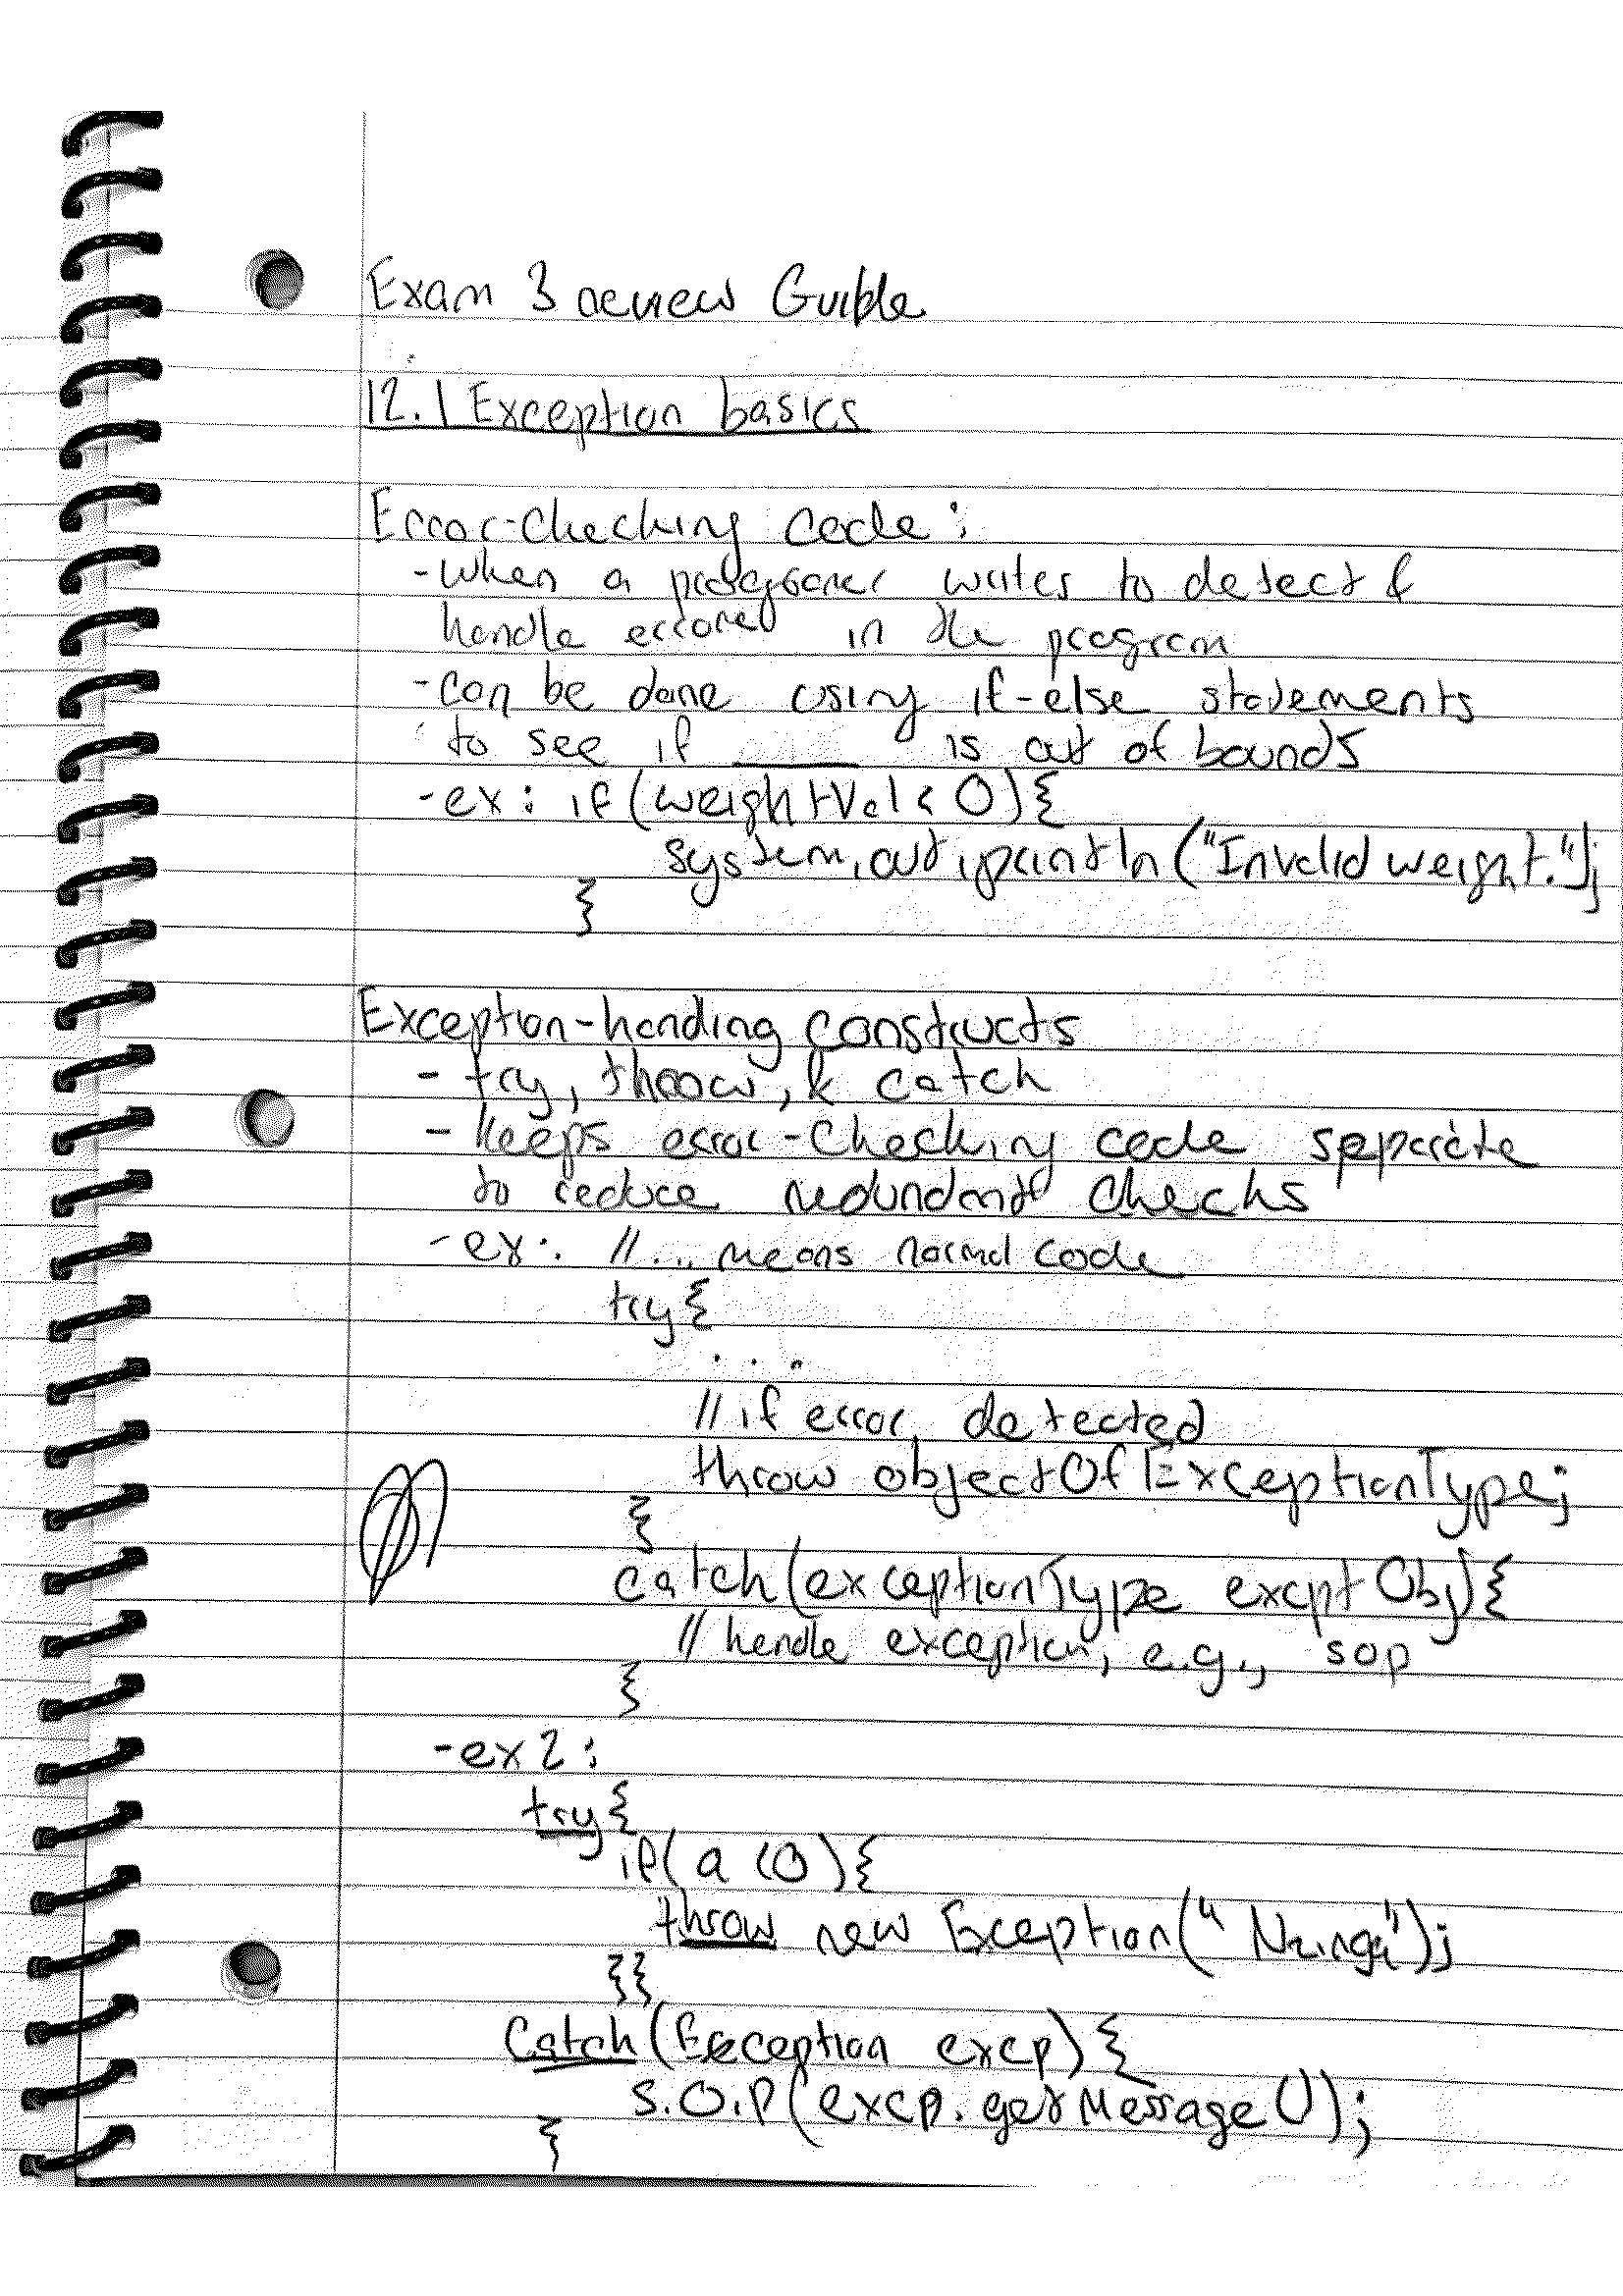 Exam 3 review Guide
12.1 Exception basics
Error-Checking Code:
- when a programer writes to detect &
handle errores in the program
- can be done using if-else statements
to see if ____ is out of bounds
- ex: if(weightVal < 0){
system.out.println("Invalid weight.");
}
Exception-handing constructs
- try, throw, & catch
- keeps error-Checking code seperate
to reduce redundant checks
- ex: //... means normal code
try{
...
// if error detected
throw objectOfExceptionType;
}
catch(exceptionType excptObj){
// handle exception, e.g., sop
}
- ex2:
try{
if(a<0){
throw new Exception("
");
}}
Catch(Exception excp){
S.O.P(excp.getMessage());
}